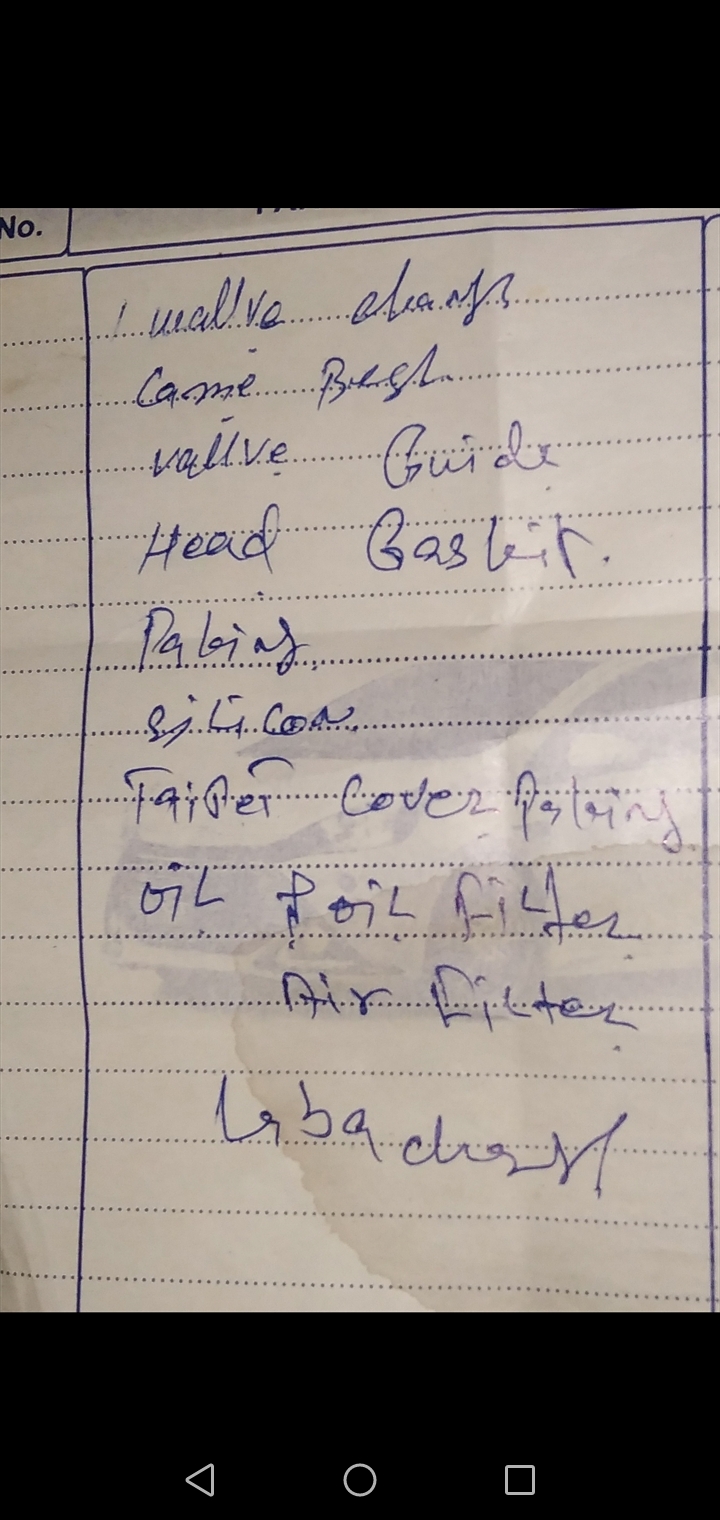 No.
vallve change
Came Besh
vallve Guide
Head Gaskit.
Paking
Silicon
Taipet Cover Paking
oil & oil Filter
Air Filter